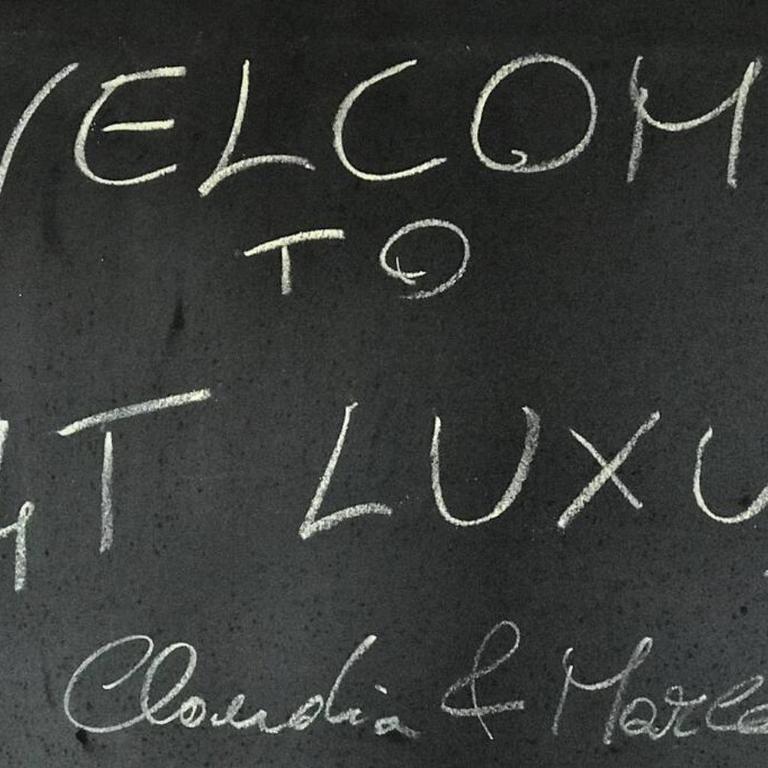 WELCOM
TO
HT LUXU
Claudia & Marle